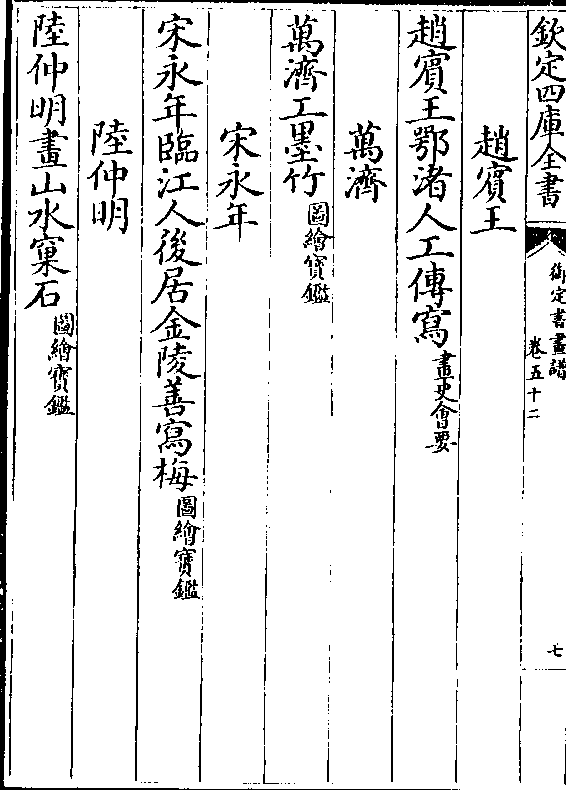 欽定四庫全書
御定書畫譜
卷五十二
七
趙賔王
趙賔王鄂渚人工傳寫畫史會要
萬濟
萬濟工墨竹圖繪寳鑑
宋永年
宋永年臨江人後居金陵善寫梅圖繪寳鑑
陸仲明
陸仲明畫山水窠石圖繪寳鑑